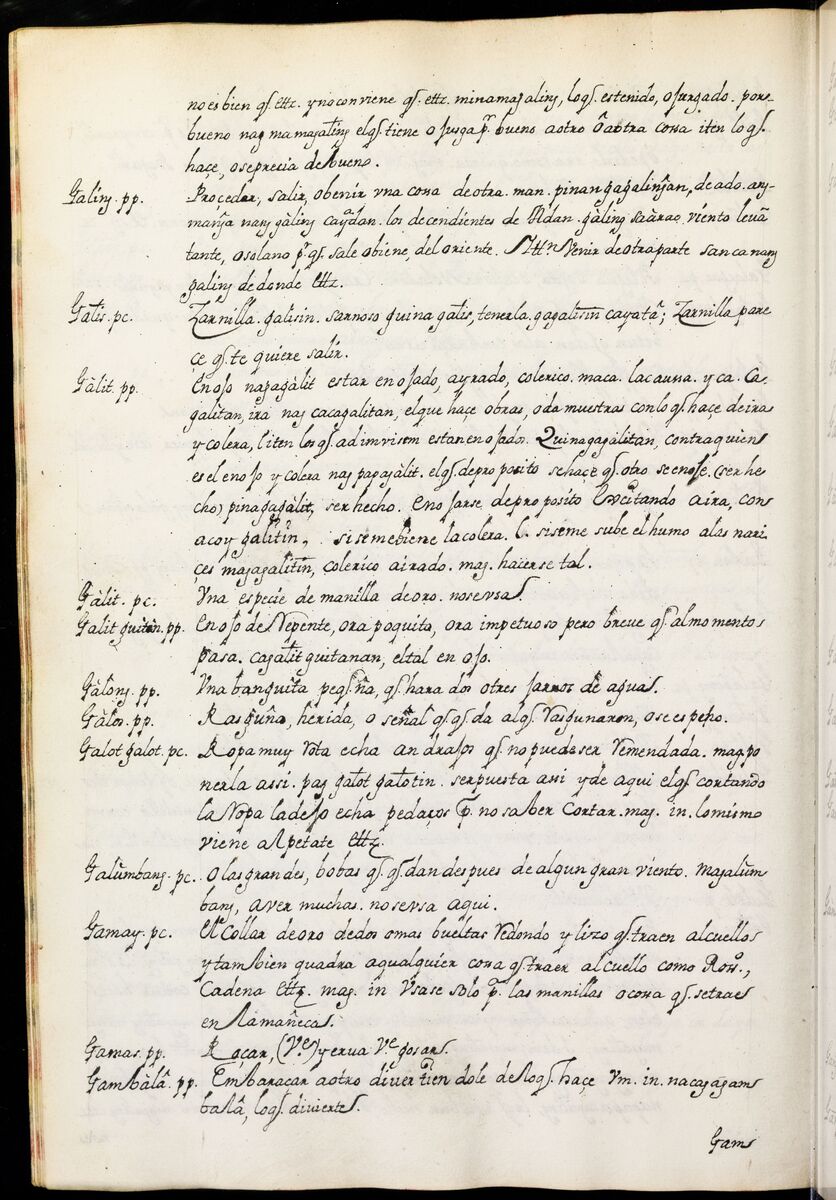 no es bien qȝ. ettz. y no conviene qȝ. ettz. minamagaling, loqȝ. es tenido, o jurgado. por
bueno nag mamagaling elqȝ. tiene o jusga pr. bueno a otro o a otra cossa iten loqȝ.
haçe, o se precia de bueno.
Galing. pp. Proçeder, salir, o benir vna cossa de otra. man. pinangagalingan, de ado. ang
manga nang gàling cay Adan. los decendientes de Adan. gàling sa àrao. viento levã
tante, o solano pr. qȝ. sale o biene, del oriente. Ittn. Venir de otra parte sancanang
galing de donde ettz.
Galis. pc. Zarnilla. galisin. sarnoso guina galis, tenerla. gagalisin cayata; Zarnilla pare
çe qȝ. te quiere salir.
Gàlit. pp. Enojo nagagàlit estar enojado, ayrado, colerico. maca. la caussa. y ca. Ca
galitan, ira nag cacagalitan, el que haçe obras, o da muestras con loqȝ. haçe de ira
y colera, l iten los qȝ. ad invisem estan enojados. Quinagagàlitan, contra quien
es el enojo y colera nag papagàlit. elqȝ. de proposito se haçe qȝ. otro se enoje. (ser he
cho) pinagagàlit, ser hecho. enojarse de proposito excitando a ira, con
acoy galitin, si se me biene la colera. l. si se me sube el humo a las nari
çes magagalitin, colerico airado. mag. hacerse tal.
Gàlit. pc. Vna especie de manilla de oro. no se vsa.
Galit guitan. pp. Enojo de repente, ora poquito, ora impetuoso pero breve qȝ. al momento
pasa. cagalit guitanan, el tal enojo.
Gàlong. pp. Vna banguita peqȝ.ña, qȝ. hara dos o tres jarros de agua.
Gàlos. pp. Rasguño, herida, o señal qȝ. qȝ.da alqȝ. rasgunaron, o se espeño.
Galot galot. pc. Ropa muy rota echa andrajos qȝ. no puede ser remendada. mag. po
nerla assi. pag galot galotin. ser puesta assi y de aqui elqȝ. cortando
la ropa la dejo echa pedaços pr. no saber cortar. mag. in. lo mismo
viene al petate ettz.
Galumbang. pc. Olas grandes, bobas qȝ. qȝ.dan despues de algun gran viento. magalum
bang, aver muchas. no se vsa aqui.
Gamay. pc. El Collar de oro de dos o mas bueltas redondo y lizo qȝ. traen al cuello
y tambien quadra a qualquier cossa qȝ. traer al cuello como Ross.,
Cadena ettz. mag. in Vsase solo pr. las manillas o cossa qȝ. se trae
en la mañeca.
Gamas. pp. Roçar, (Ve.) yerua Ve. gosar.
Gambàlâ. pp. Embaraçar a otro divertien dole de loqȝ. haçe Vm. in. nacagàgam
balâ, loqȝ. divierte.
Gam